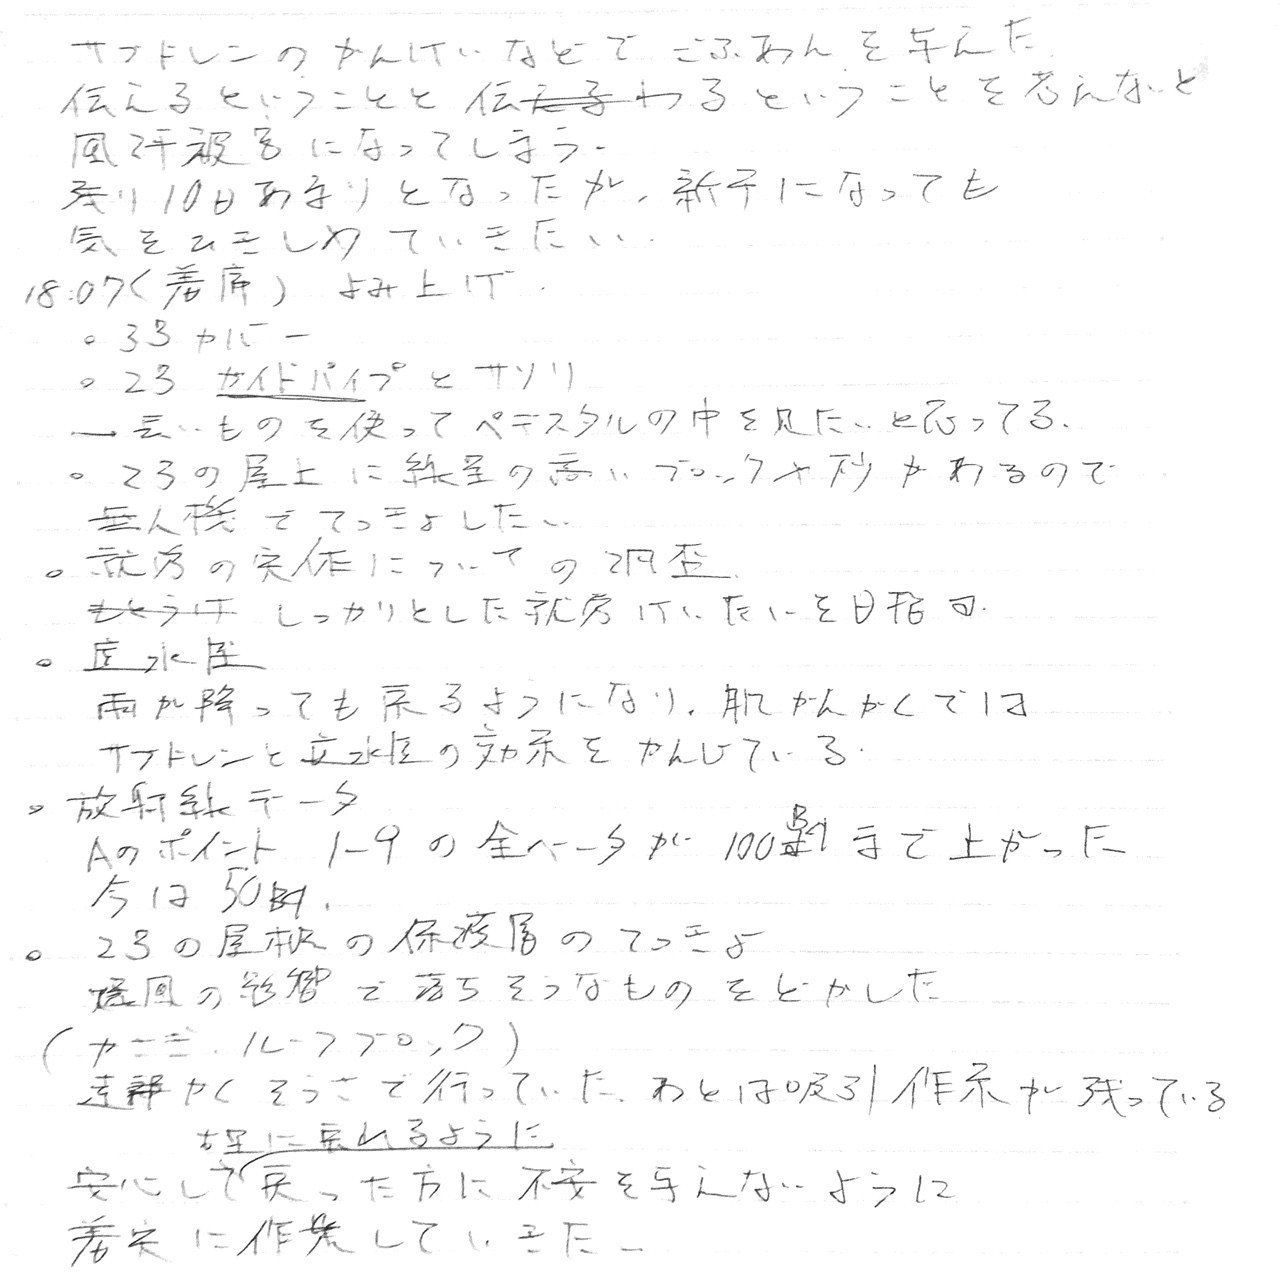 サブドレンのかんけいなどでごふあんを与えた
伝えるということと伝わるということを考えないと
風評被害になってしまう。
残り10日あまりとなったが、新年になっても
気をひきしめていきたい。
18:07(着席) よみ上げ
。3号カバー
。2号 ガイドパイプとサソリ
→長いものを使ってペデスタルの中を見たいと思ってる、
。2号の屋上に線量の高いブロックや砂があるので
無人機でてっきょしたい。
。就労の実体についての調査、
もとうけ しっかりとした就労けいたいを目指す。
。
雨が降っても戻るようになり、肌かんかくでは
サブドレンと の効果をかんじている。
。放射線データ
Aのポイント 1-9の全ベータが100 Bqまで上がった
今は50Bq.
。2号の屋根の保護層のてっきょ
爆風の影響で落ちそうなものをどかした
(カニ ルーフブロック)
遠かくそうさで行っていた、あとは吸引作業が残っている
に戻れるように
安心して戻った方に不安を与えないように
着実に作業していきたー